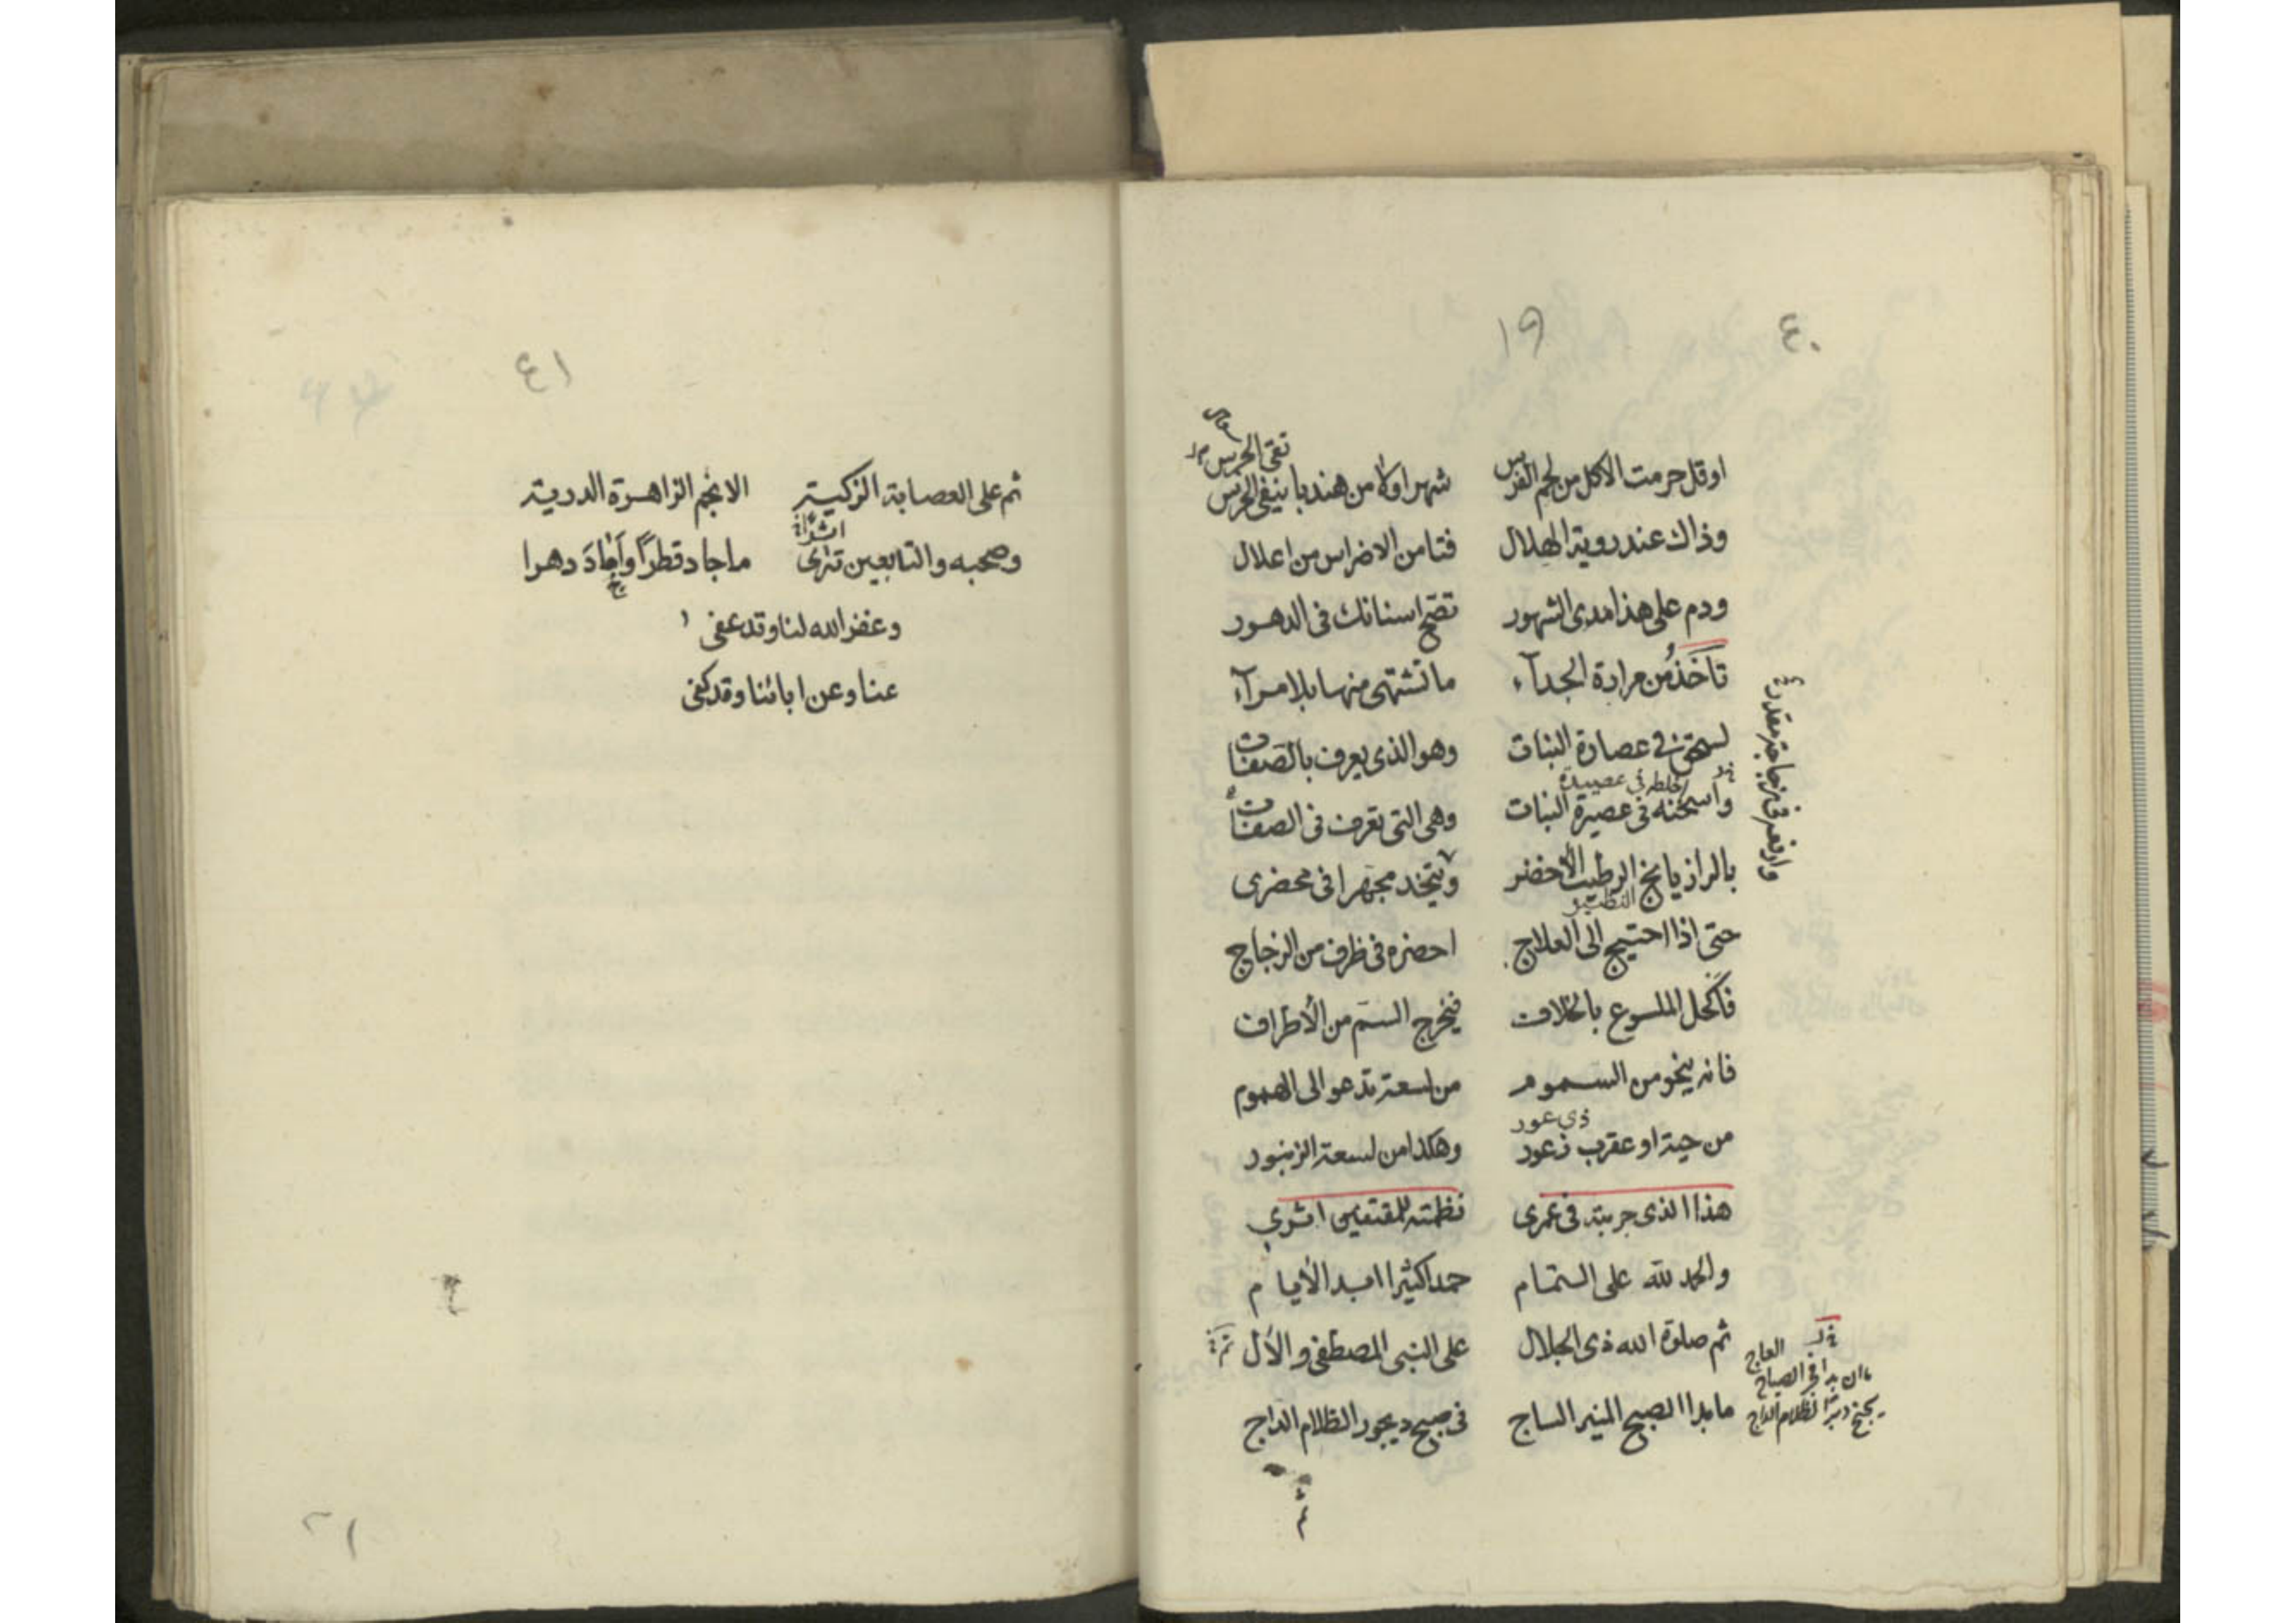 ٤٠
١٩
اوقل حرمت الاكل من لحم الفرس شهرا وكلا من هندبا ينفى الحرس
وذاك عند روية الهلال فتا من الاضراس من اعلال
ودم على هذا مدى الشهور تصح اسنانك فى الدهور
تاخذ من مرارة الجدآء ما تشتهى منها بلا مرآء
لسحق فى عصارة النبات وهو الذى يعرف بالصفات
اخلطه فى عصيدة
واسحنه فى عصيرة النبات وهى التى تعرف فى الصفات
بالرازيانج الرطيب الاخضر ويتخد مجهرا فى محضرى
حتى اذا احتيج الى العلاج احضره فى ظرف من الزجاج
فاكحل الملسوع بالخلاف فيخرج السم من الأطراف
فانه ينجو من السموم من لسعة تدعو الى الهموم
ذي عور
من حية او عقرب ذعور وهكذا من لسعة الزنبور
هذا الذى جربته فى عمرى نظمته للمقتفين اثري
والحمد لله على التمام حمدا كثيرا ابد الأيام
ثم صلوة الله ذى الجلال على النبى المصطفى والآل
ما بدا الصبح المنير الساج فى صبح ديجور الظلام الداج
وارفعه فى زجاجة مقدرة
العاج
ان بدا فى الصباح
الظلام الداج
٤١
ثم على العصابة الزكية الانجم الزاهرة الدرية
وصحبه والتابعين تترى ما جاد قطرًا وأجادَ دهرا
وغفر الله لنا وقد عفى
عنا وعن ابائنا وقد كفى